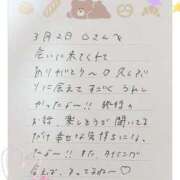 3月2日 〇さんへ
会いに来てくれて
ありがとう〜〇 久しぶ
りに会えて すごく うれし
かったよ〜!! 地焼の
お話、楽しそうで 聞いてる
だけで幸せな気持ちになっ
たよ〜!! また、タイミング
合えば、まってるね〜♡